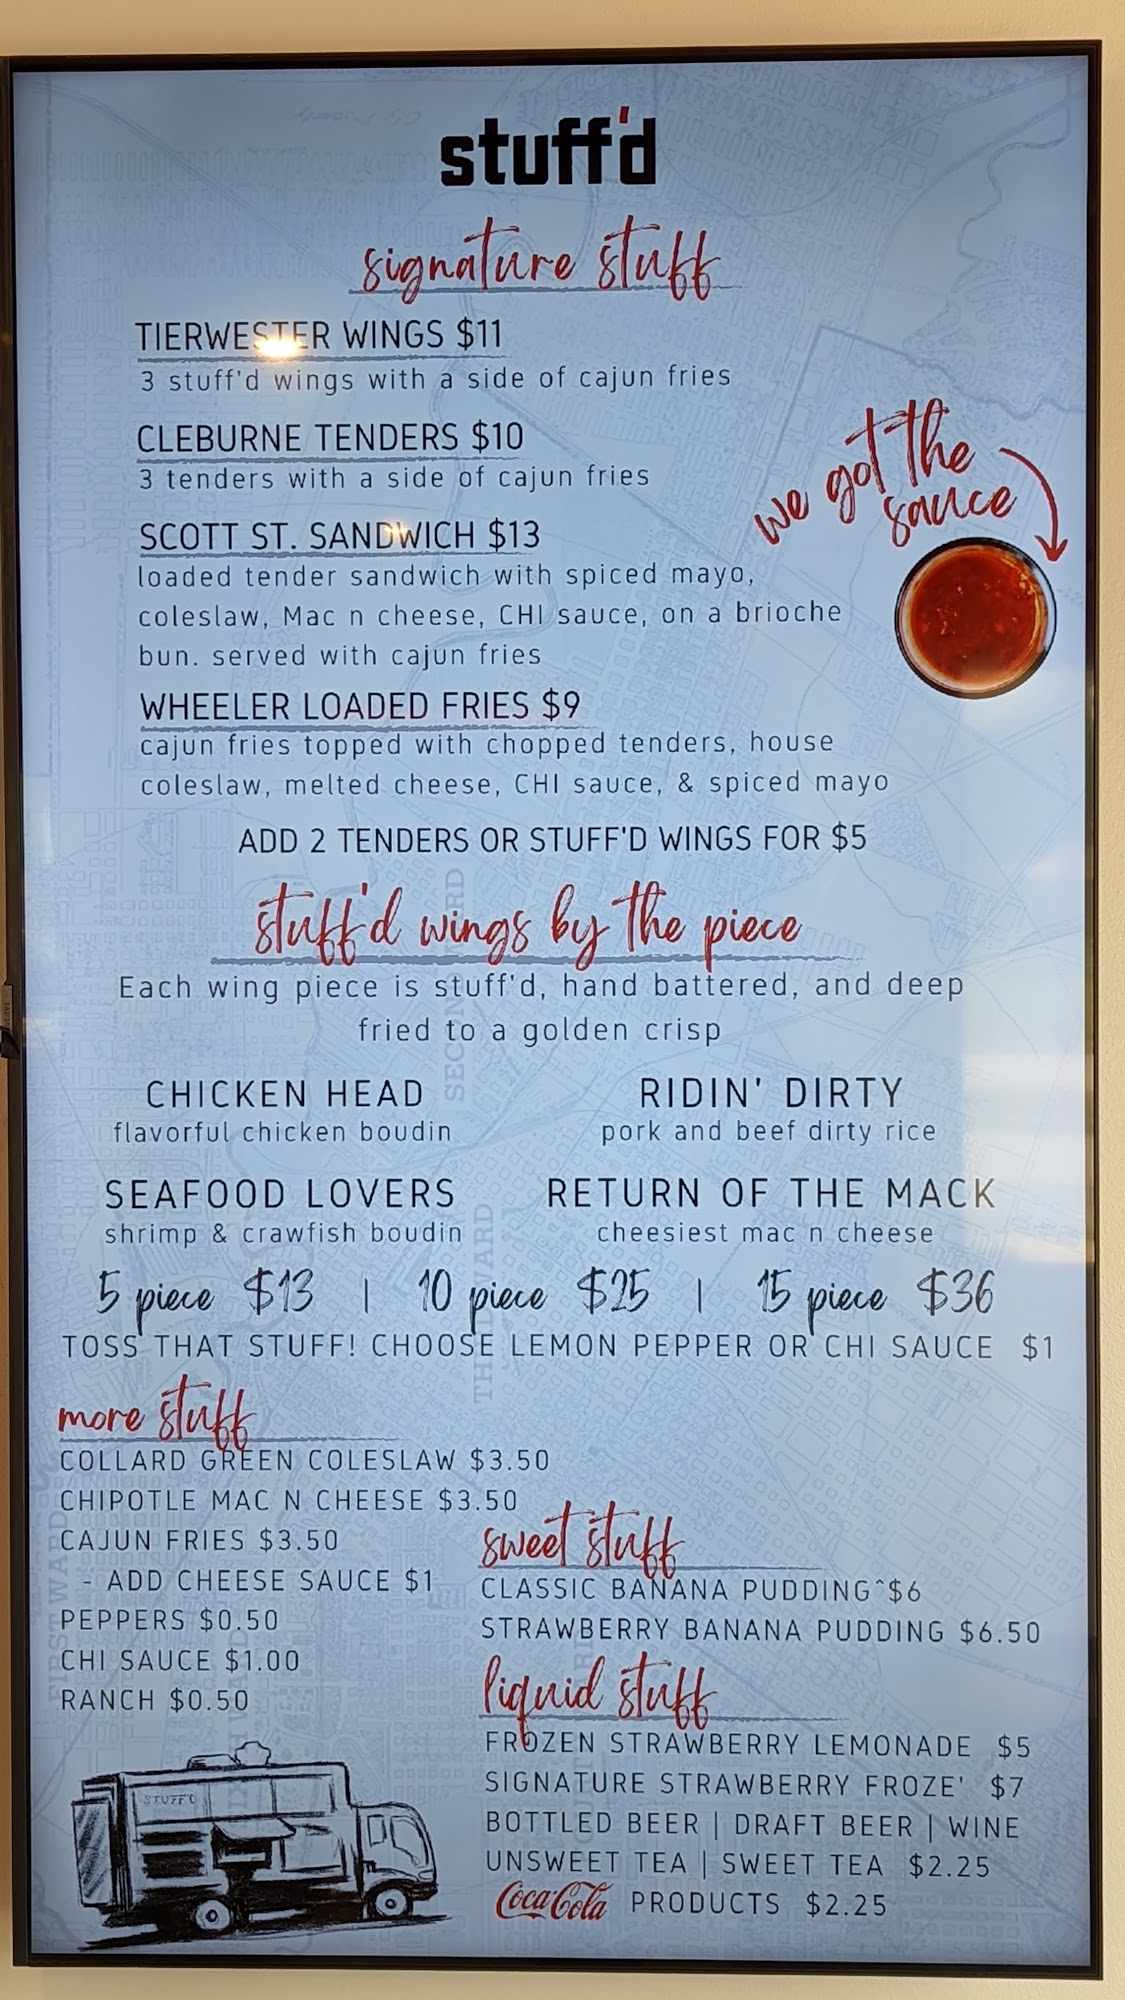 stuff'd
signature stuff
TIERWESTER WINGS $11
3 stuff'd wings with a side of cajun fries
CLEBURNE TENDERS $10
3 tenders with a side of cajun fries
we got the
sauce
SCOTT ST. SANDWICH $13
loaded tender sandwich with spiced mayo,
coleslaw, Mac n cheese, CHI sauce, on a brioche
bun. served with cajun fries
WHEELER LOADED FRIES $9
cajun fries topped with chopped tenders, house
coleslaw, melted cheese, CHI sauce, & spiced mayo
ADD 2 TENDERS OR STUFF'D WINGS FOR $5
stuff'd wings by the piece
Each wing piece is stuff'd, hand battered, and deep
fried to a golden crisp
CHICKEN HEAD
flavorful chicken boudin
RIDIN' DIRTY
pork and beef dirty rice
SEAFOOD LOVERS
shrimp & crawfish boudin
RETURN OF THE MACK
cheesiest mac n cheese
5 piece $13 | 10 piece $25 | 15 piece $36
TOSS THAT STUFF! CHOOSE LEMON PEPPER OR CHI SAUCE $1
more stuff
COLLARD GREEN COLESLAW $3.50
CHIPOTLE MAC N CHEESE $3.50
CAJUN FRIES $3.50
- ADD CHEESE SAUCE $1
PEPPERS $0.50
CHI SAUCE $1.00
RANCH $0.50
STUFF'D
sweet stuff
CLASSIC BANANA PUDDING^$6
STRAWBERRY BANANA PUDDING $6.50
liquid stuff
FROZEN STRAWBERRY LEMONADE $5
SIGNATURE STRAWBERRY FROZE' $7
BOTTLED BEER | DRAFT BEER | WINE
UNSWEET TEA | SWEET TEA $2.25
Coca-Cola PRODUCTS $2.25
SECOND WARD
THIRD WARD
FIRST WARD